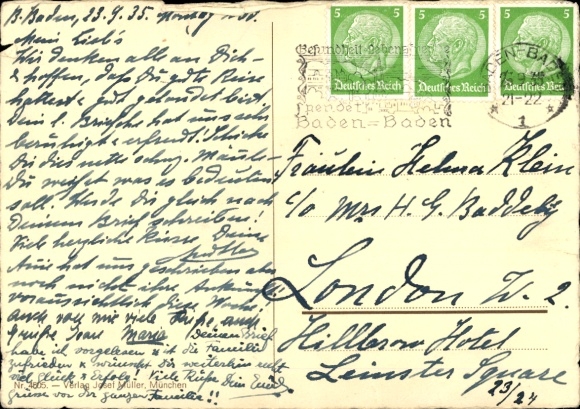 B. Baden, 23.9.35.
Mein Lieb's
Wir denken alle an Dich
& hoffen, dass Du gute Reise
gehabt & gut gelandet bist.
Dein l. Briefchen hat uns sehr
beruhigt & erfreut! Schicke
Dir dies nette schwz. Mäusle
Du weisst was es bedeuten
soll. Werde Dir gleich nach
Deinem Brief schreiben!
Viele herzliche Küsse Deine
Mutter
hat uns geschrieben aber
noch nicht ihre Ankunft
voraussichtlich diese Woche
auch von mir viele Grüße auch
Grüße Maria Deinen Brief
habe ich vorgelesen & ist die Familie
zufrieden & wünscht Dir weiterhin recht
viel Glück & Erfolg! Viele Küsse Dein
Grüsse von der ganzen Familie!!
Nr. 4605. — Verlag Josef Müller, München
5 5 5
Deutsches Reich Deutsches Reich Deutsches Reich
Gesundheit
spendet
Baden-Baden
BADEN-BADEN
21-22
1
Fräulein Helma Klein
c/o Mrs H. G. Baddeley
London W. 2.
Hillbrow Hotel
Leinster Square
23/24